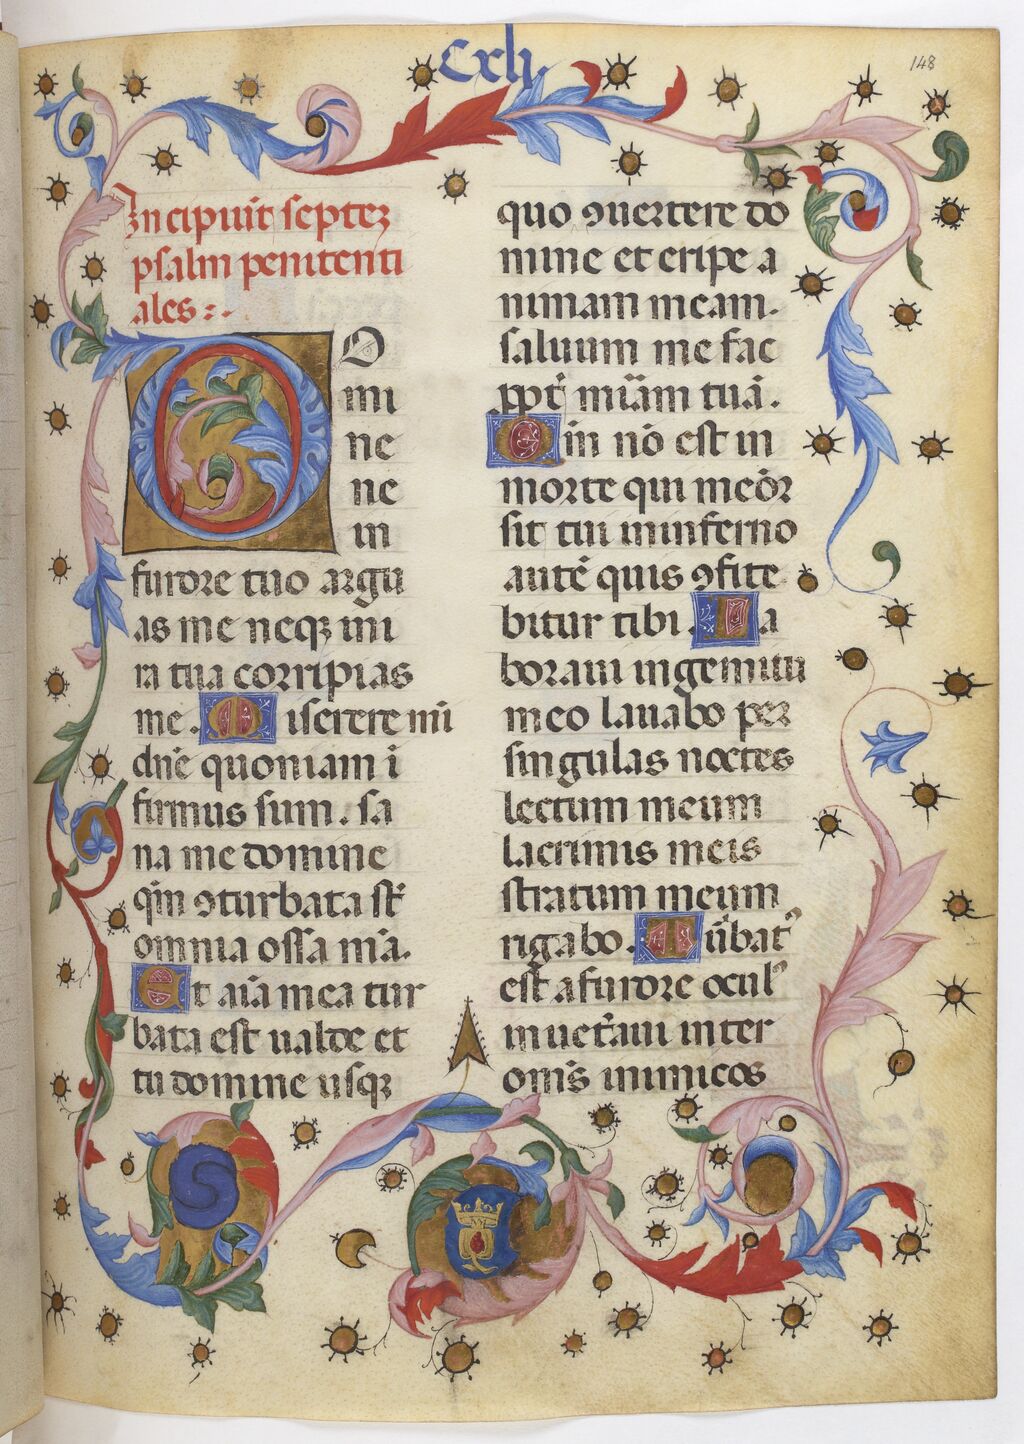 Cxlj
148
Incipuit septeʒ
psalm penitenti
ales :·
DO
mi
ne
ne
in
furore tuo argu
as me neqʒ in i
ra tua corripias
me. Miserere mī
dn̄e quoniam i
firmus sum. sa
na me domine
qm̄ ꝯturbata st̄
omnia ossa m̄a.
Et aīa mea tur
bata est ualde et
tu domine usqʒ
quo ꝯuertere do
mine et eripe a
nimam meam.
saluum me fac
ppt̄ miām tuā.
Qm nō est in
morte qui meōr
sit tui in inferno
autē quis ꝯfite
bitur tibi. La
boraui in gemitu
meo lauabo per
singulas noctes
lectum meum
lacrimis meis
stratum meum
rigabo. Tūbatꝰ
est a furore oculꝰ
inuet̄aui inter
om̄s inimicos
S